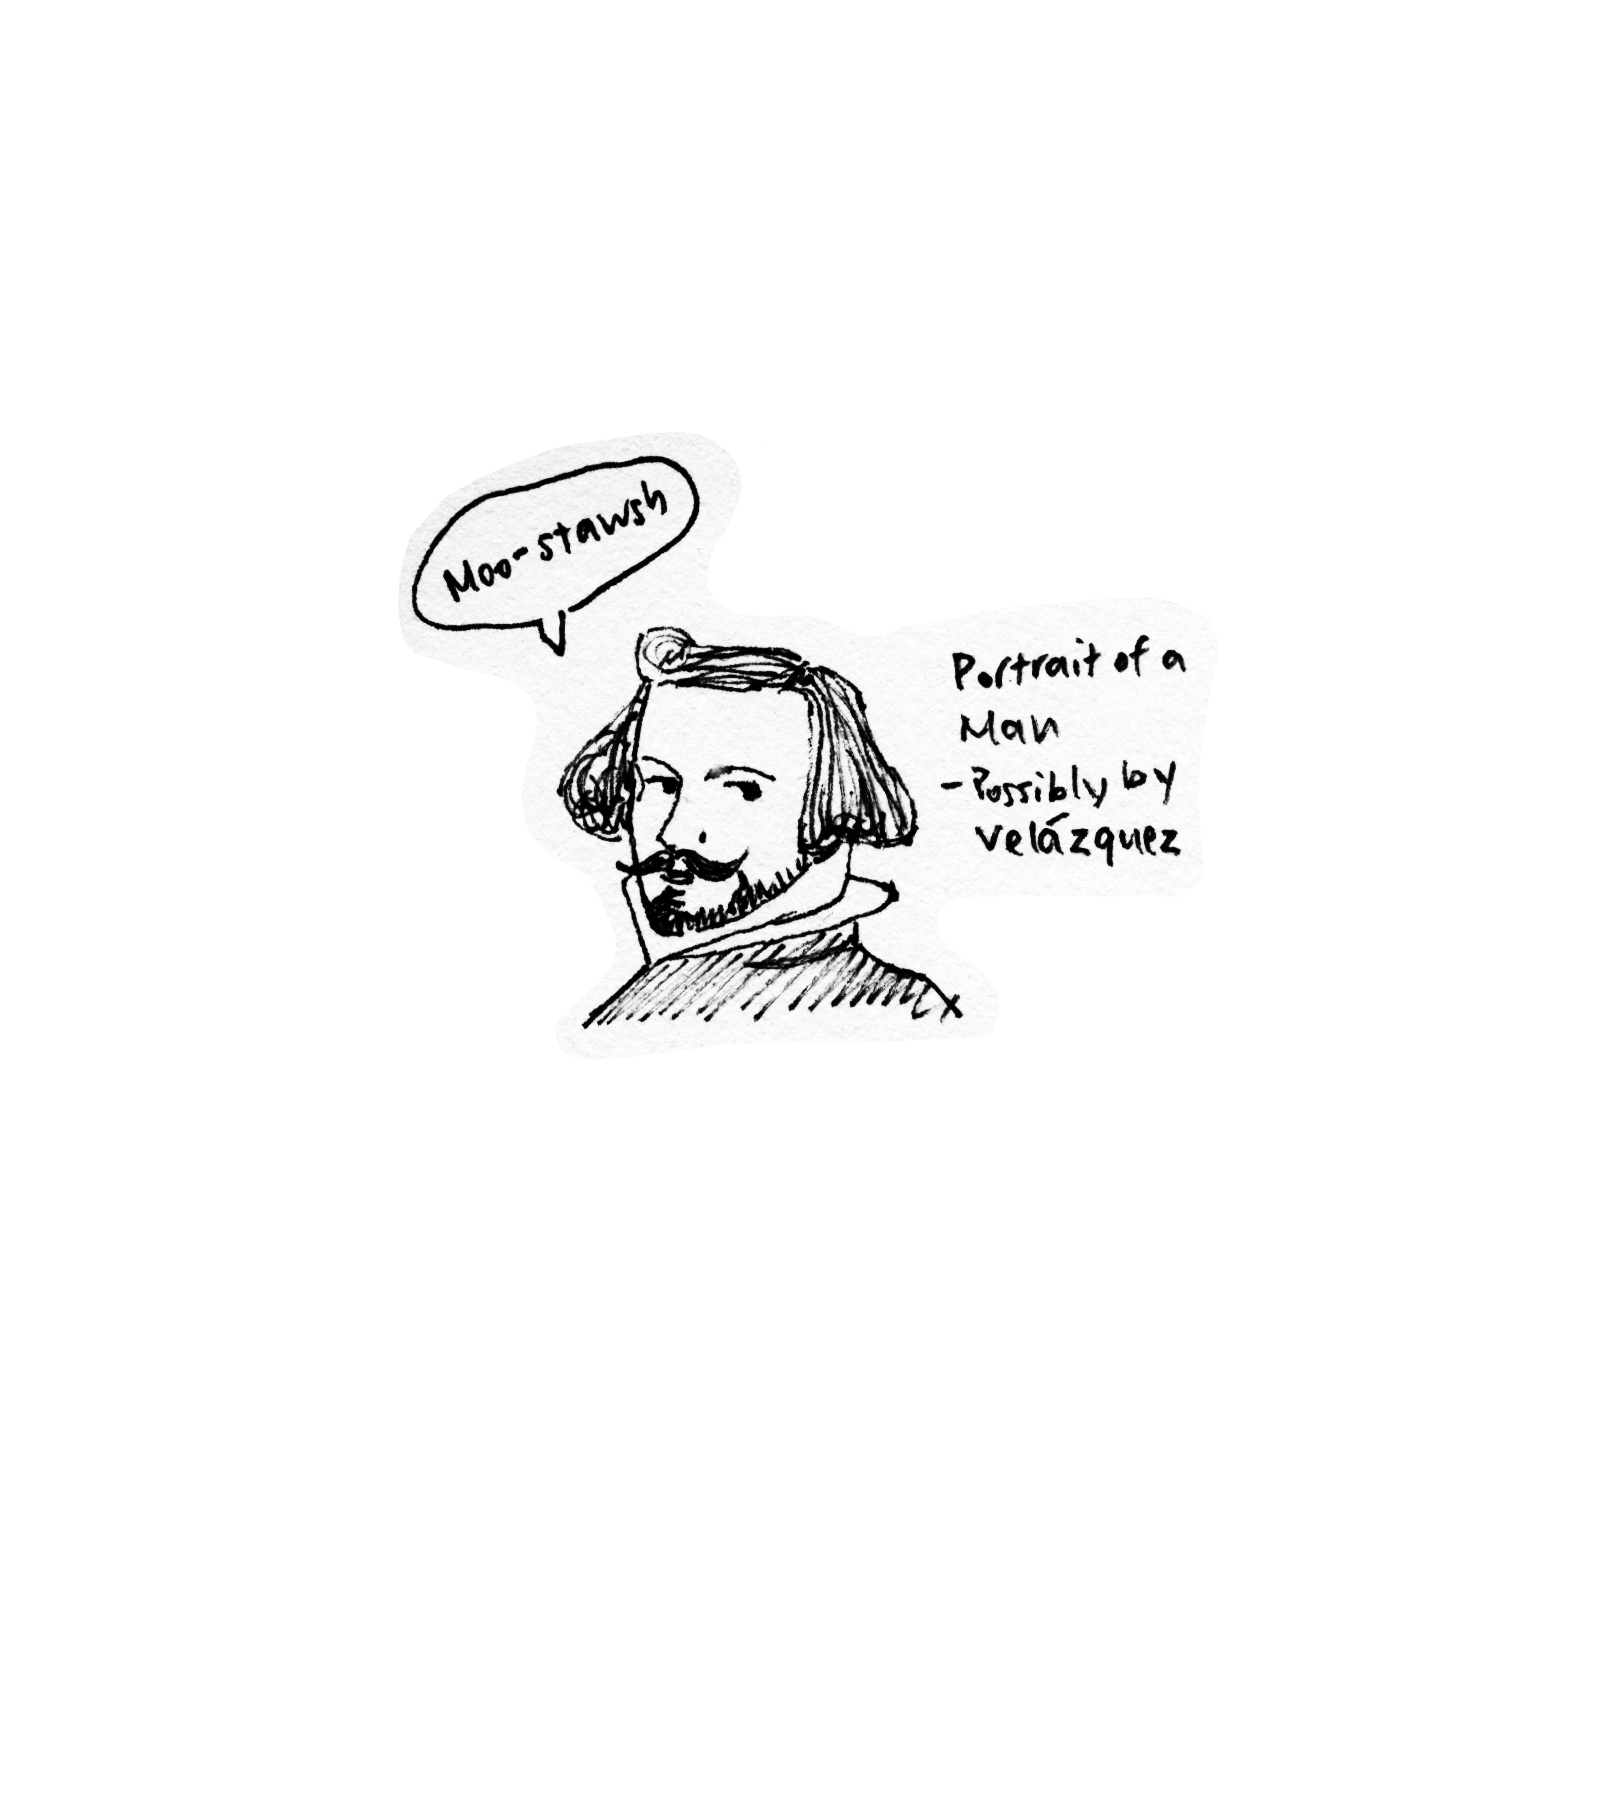 Moo-stawsh
Portrait of a
Man
-Possibly by
Velázquez